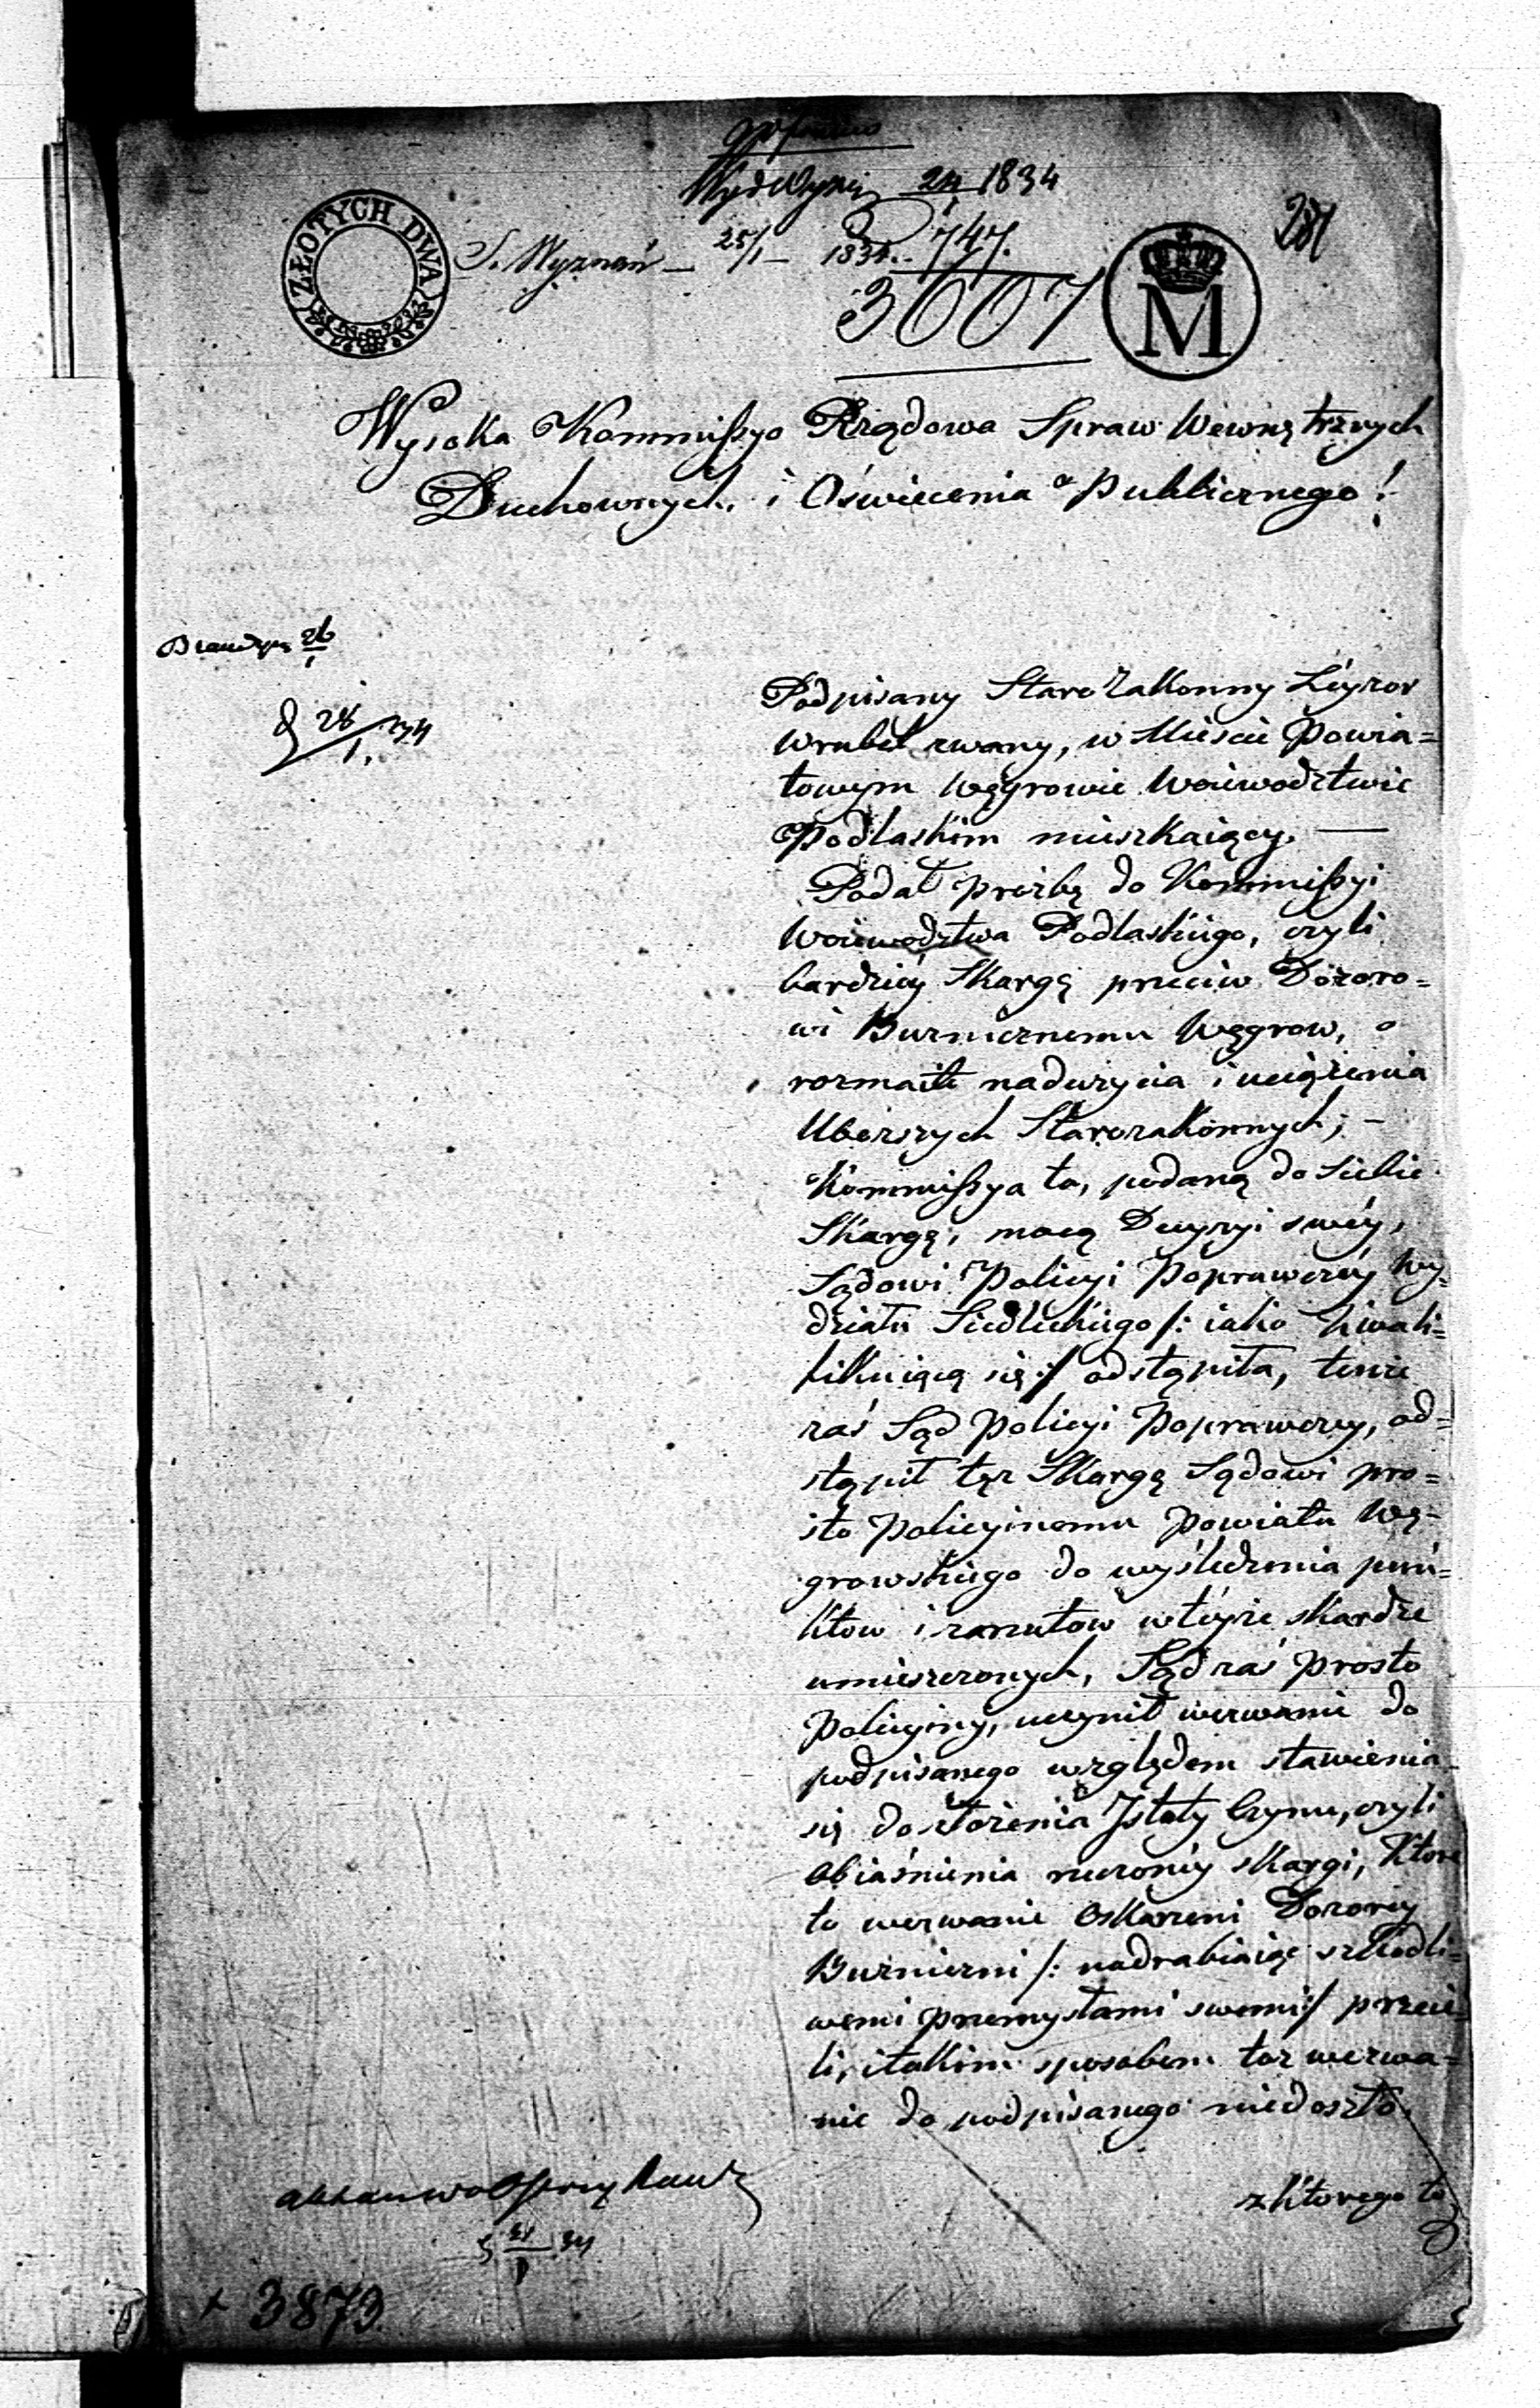 Wyd Wyzn 24/1 1834
ZŁOTYCH DWA
S. Wyznań — 25/1 — 1834. 747.
281
3007
M
Wysoka Kommißya Rządowa Spraw Wewnętrznych
Duchownych i Oświecenia Publicznego!
26/1
28/1. 34
Podpisany Starozakonny Leyzor
Wrubel zwany, w Mieście Powia=
towym Węgrowie Woiewodztwie
Podlaskim mieszkaiący. —
Podał prozbę do Kommißyi
Woiewodztwa Podlaskiego, czyli
bardziey Skargę przeciw Dozoro=
wi Buznicznemu Węgrow, o
rozmaite nadużycia i uciążenia
Uboższych Starozakonnych; –
Kommißya ta, podaną do siebie
Skargę, mocą Decyzyi swéy,
Sądowi Policyi Poprawczéy Wy=
działu Siedleckiego /: iako kwali=
fikuiącą się :/ odstąpiła, tenże
zaś Sąd Policyi Poprawczey, od=
stąpił tęż Skargę Sądowi pro=
sto Policyinemu Powiatu Wę=
growskiego do wyśledzenia pun=
któw i zarzutow w teyże skardze
umieszczonych, Sąd zaś prosto
Policyiny, uczynił wezwanie do
podpisanego względem stawienia
się do złożenia Jstoty Czynu, czyli
obiaśnienia rzeczoney skargi, Które
to wezwanie Oskarżeni Dozorcy
Buzniczni /: nadrabiaiąc szkodli=
wemi przemysłami swemi :/ przeię=
li, i takim sposobem toż wezwa=
nie do podpisanego niedoszło.
z którego to
21/1 34
+ 3879.